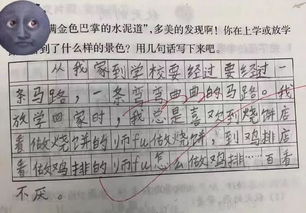 满金色巴掌的水泥道”,多美的发现啊!你在上学或放学
到了什么样的景色?用几句话写下来吧。
从我家到学校要经过要经过一
条马路,一条弯弯曲曲的马路。我
放学回家时,我总是喜欢到烧饼店
看做烧饼的师fu做烧饼,到鸡排店
看做鸡排的师fu怎么做鸡排…百看
不厌。